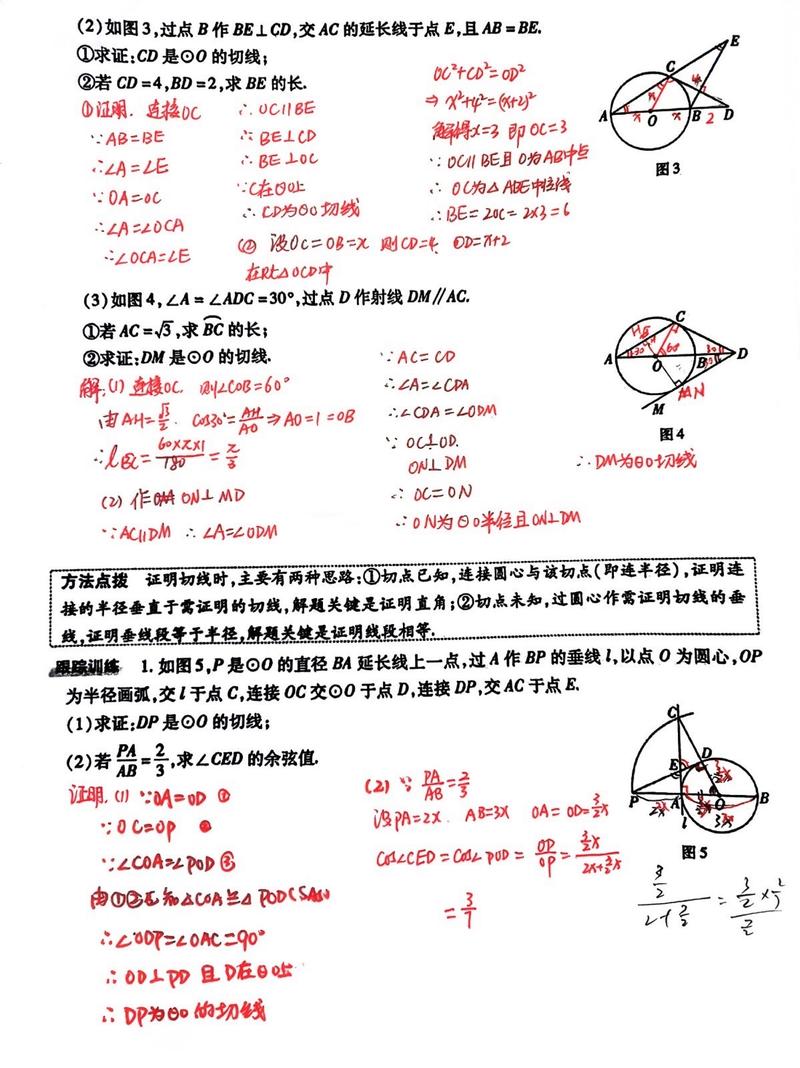 (2)如图3,过点B作BE⊥CD,交AC的延长线于点E,且AB=BE.
①求证:CD是⊙O的切线;
②若CD=4,BD=2,求BE的长.
①证明. 连接OC
∵AB=BE
∴∠A=∠E
∵OA=OC
∴∠A=∠OCA
∴∠OCA=∠E
∴OC∥BE
∵BE⊥CD
∴BE⊥OC
∵C在⊙O上
∴CD为⊙O切线
(2) 设OC=OB=x 则CD=4, OD=x+2
在Rt△OCD中
OC²+CD²=OD²
⇒ x²+4²=(x+2)²
解得x=3 即OC=3
∵OC∥BE且O为AB中点
∴OC为△ABE中位线
∴BE=2OC=2×3=6
A
O
B
D
C
E
x
x
x
2
4
图3
(3)如图4,∠A=∠ADC=30°,过点D作射线DM∥AC.
①若AC=√3,求BC的长;
②求证:DM是⊙O的切线.
解:(1) 连接OC. 则∠COB=60°
由AH=√3/2. cos30°=AH/AO ⇒AO=1=OB
∴l BC=60×π×1/180=π/3
(2) 作ON⊥MD
∵AC∥DM ∴∠A=∠ODM
∵AC=CD
∴∠A=∠CDA
∴∠CDA=∠ODM
∵OC⊥OD.
ON⊥DM
∴OC=ON
∴ON为⊙O半径且ON⊥DM
∴DM为⊙O切线
A
O
B
D
C
M
H
N
30
60
30
30
图4
方法点拨 证明切线时,主要有两种思路:①切点已知,连接圆心与该切点(即连半径),证明连
接的半径垂直于需证明的切线,解题关键是证明直角;②切点未知,过圆心作需证明切线的垂
线,证明垂线段等于半径,解题关键是证明线段相等.
跟踪训练 1.如图5,P是⊙O的直径BA延长线上一点,过A作BP的垂线l,以点O为圆心,OP
为半径画弧,交l于点C,连接OC交⊙O于点D,连接DP,交AC于点E.
(1)求证:DP是⊙O的切线;
(2)若PA/AB=2/3,求∠CED的余弦值.
证明. (1) ∵OA=OD ①
∵OC=OP ②
∵∠COA=∠POD ③
由①②③知△COA≌△POD(SAS)
∴∠ODP=∠OAC=90°
∴OD⊥PD 且D在⊙O上
∴DP为⊙O的切线
(2) ∵PA/AB=2/3
设PA=2x. AB=3x OA=OD=3/2x
cos∠CED=cos∠POD=OD/OP=3/2x/2x+3/2x
=3/7
C
D
E
P
A
O
B
l
2x
3x
图5